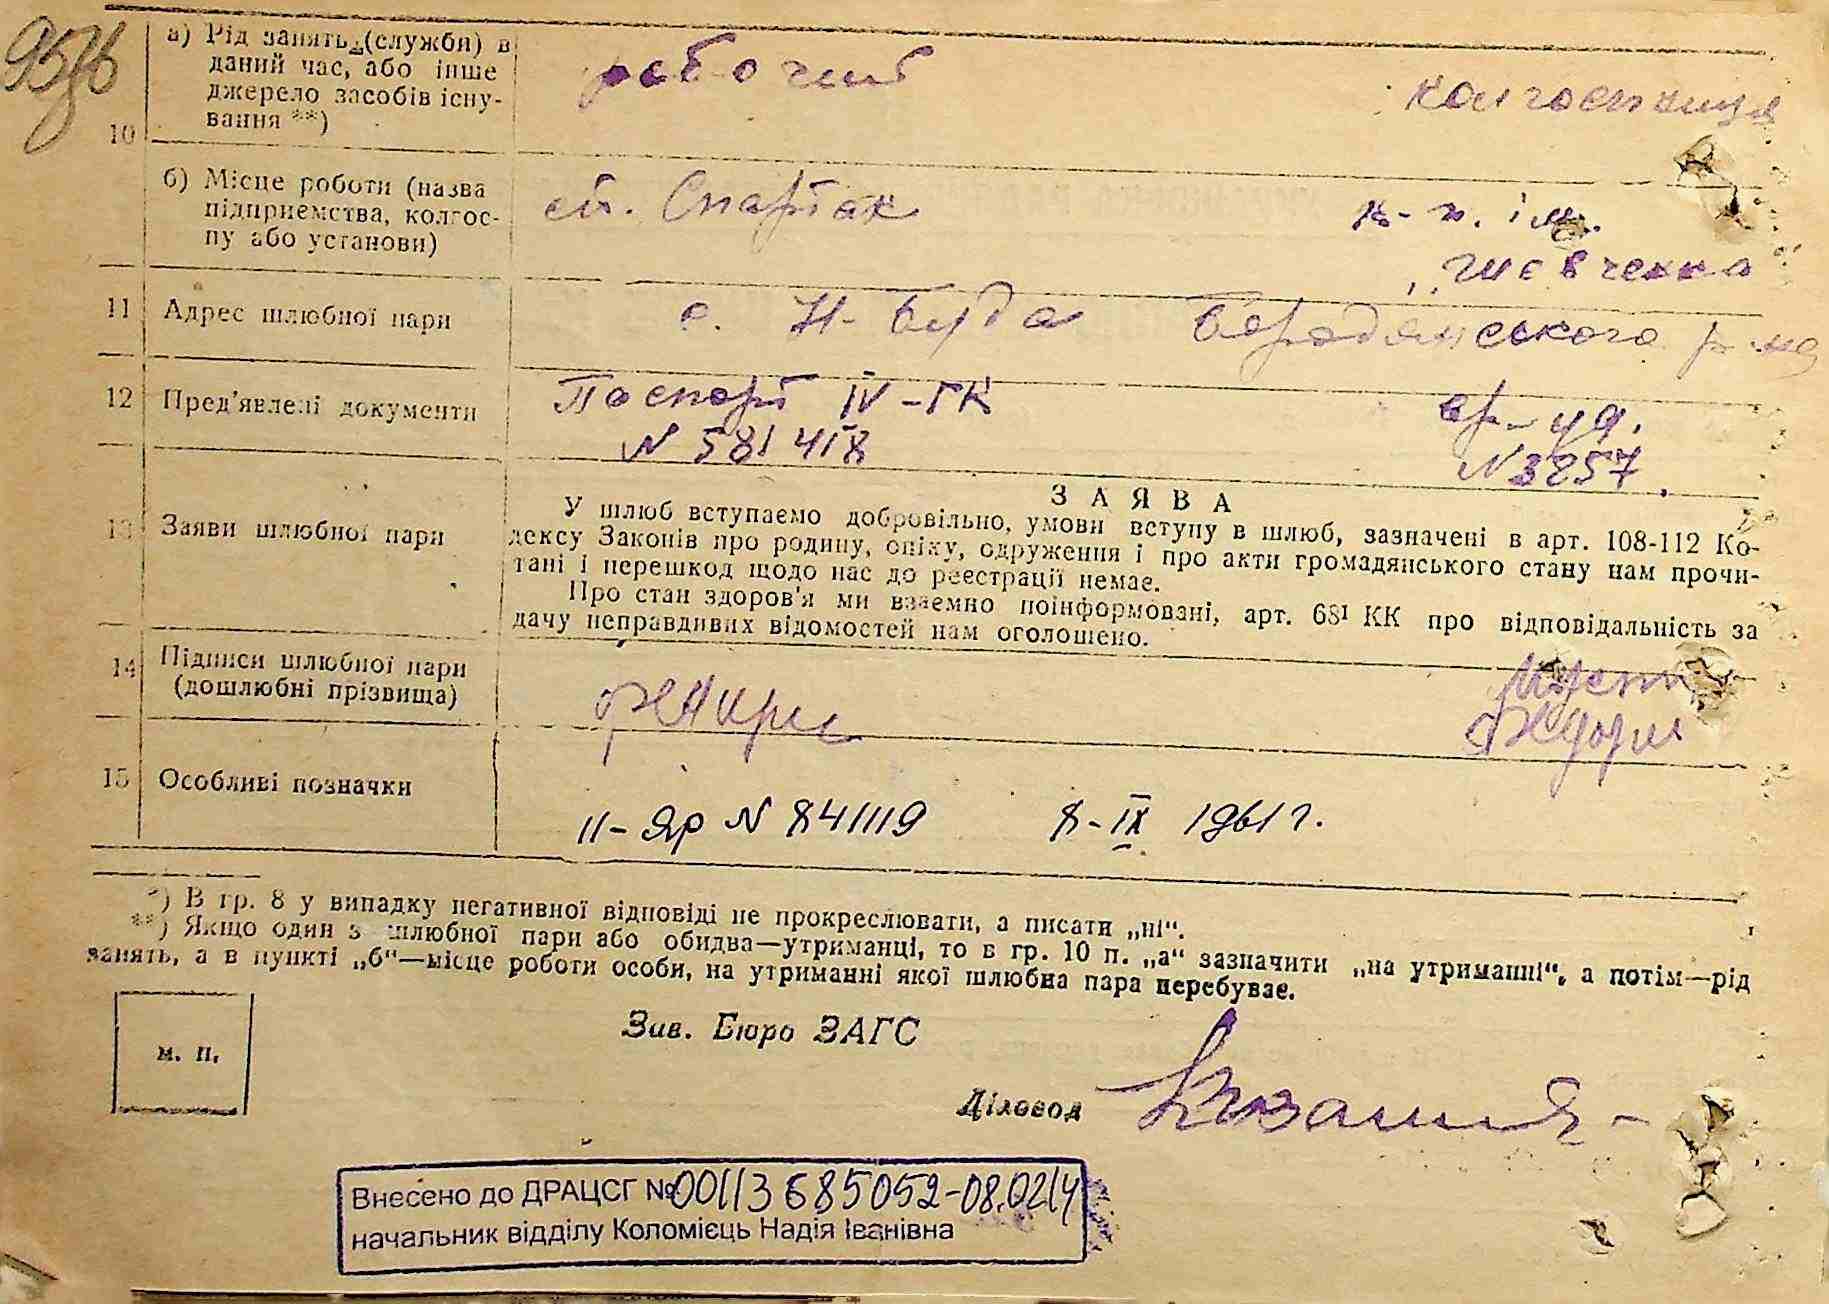 а) Рід занять (служби) в
даний час, або інше
джерело засобів існу-
вання **)
10
рабочий
колгоспниця
б) Місце роботи (назва
підприємства, колгос-
пу або установи)
ст. Спартак
к-п. ім.
„Шевченка
11 Адрес шлюбної пари
с. Н-Буда Бородянського р-на
12 Пред'явлені документи
Паспорт IV-ГК
N 581418
N 3257
13 Заяви шлюбної пари
ЗАЯВА
У шлюб вступаємо добровільно, умови вступу в шлюб, зазначені в арт. 108-112 Ко-
дексу Законів про родину, опіку, одруження і про акти громадянського стану нам прочи-
тані і перешкод щодо нас до реєстрації немає.
Про стан здоров'я ми взаємно поінформовані, арт. 68¹ КК про відповідальність за
дачу неправдивих відомостей нам оголошено.
14 Підписи шлюбної пари
(дошлюбні прізвища)
15 Особливі позначки
II-Яр N 841119 8-IX 1961 г.
*) В гр. 8 у випадку негативної відповіді не прокреслювати, а писати „ні“.
**) Якщо один з шлюбної пари або обидва—утриманці, то в гр. 10 п. „а“ зазначити „на утриманні“, а потім—рід
занять, а в пункті „б“—місце роботи особи, на утриманні якої шлюбна пара перебуває.
м. п.
Зав. Бюро ЗАГС
Діловод
Внесено до ДРАЦСГ №00113685052-08.02.14
начальник відділу Коломієць Надія Іванівна